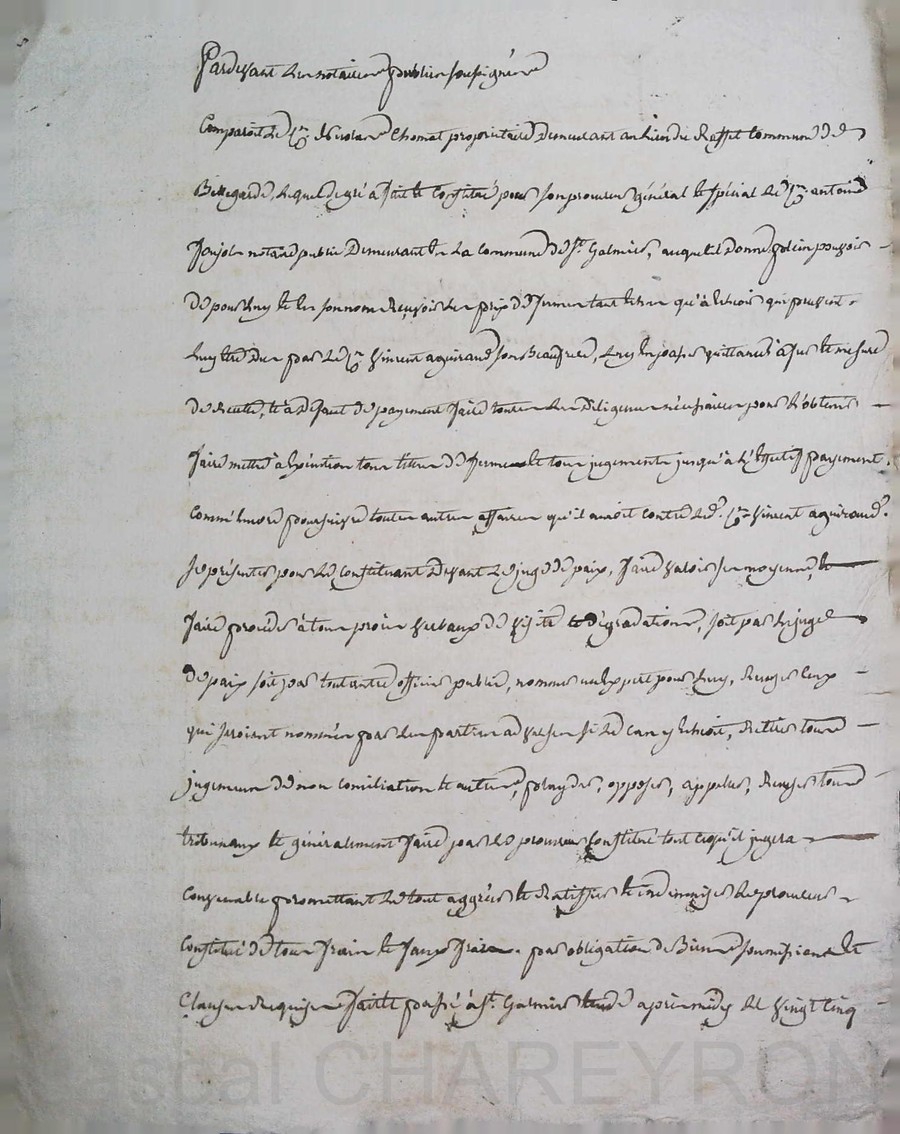 Pardevant les notaires publics soussignés
Comparoit le Cn. Nicolas Chomat propriétaire demeurant au lieu de Raffet Commune de
Bellegarde, lequel de gré a fait et constitué pour son procureur général et spécial le Cn. antoine
Pujol notaire public demeurant en La commune de St. Galmier, auquel il donne plein pouvoir
de pour luy et en son nom Reçevoir les prix de fermes tant échus qu'à échoir qui peuvent
luy être dus par le Cn. Vincent aguiraud son Beaufrere, luy en passer quittance à fur et mesure
de Recette, et à défaut de payement faire toutes les diligences nécessaires pour l'obtenir
faire mettre à exécution tous titres de fermes et tous jugements jusqu'à l'effectif payement.
Comme encore poursuivre toutes autres affaires qu'il auroit contre led. Cn. Vincent aguiraud.
Se présenter pour le Constituant devant le juge de paix, faire valoir ses moyens, et
faire procéder à tous procès verbaux de visite et dégradations, soit par le juge
de paix soit par tout autre officier public, nommer un expert pour luy, Recuser ceux
qui seroient nommés par les parties adverses si le cas y échoit, Retirer tous
jugements de non conciliation et autres, plaider, opposer, appeler, Recuser tous
tribunaux et généralement faire par le procureur Constitué tout ce qu'il jugera
convenable promettant le tout aggréer et Ratifier et indemniser le procureur
Constitué de tous frais et faux frais. par obligation de Biens soumissions et
Clauses Requises fait et passé à St. Galmier étude après midy le vingt cinq
Pascal CHAREYRON